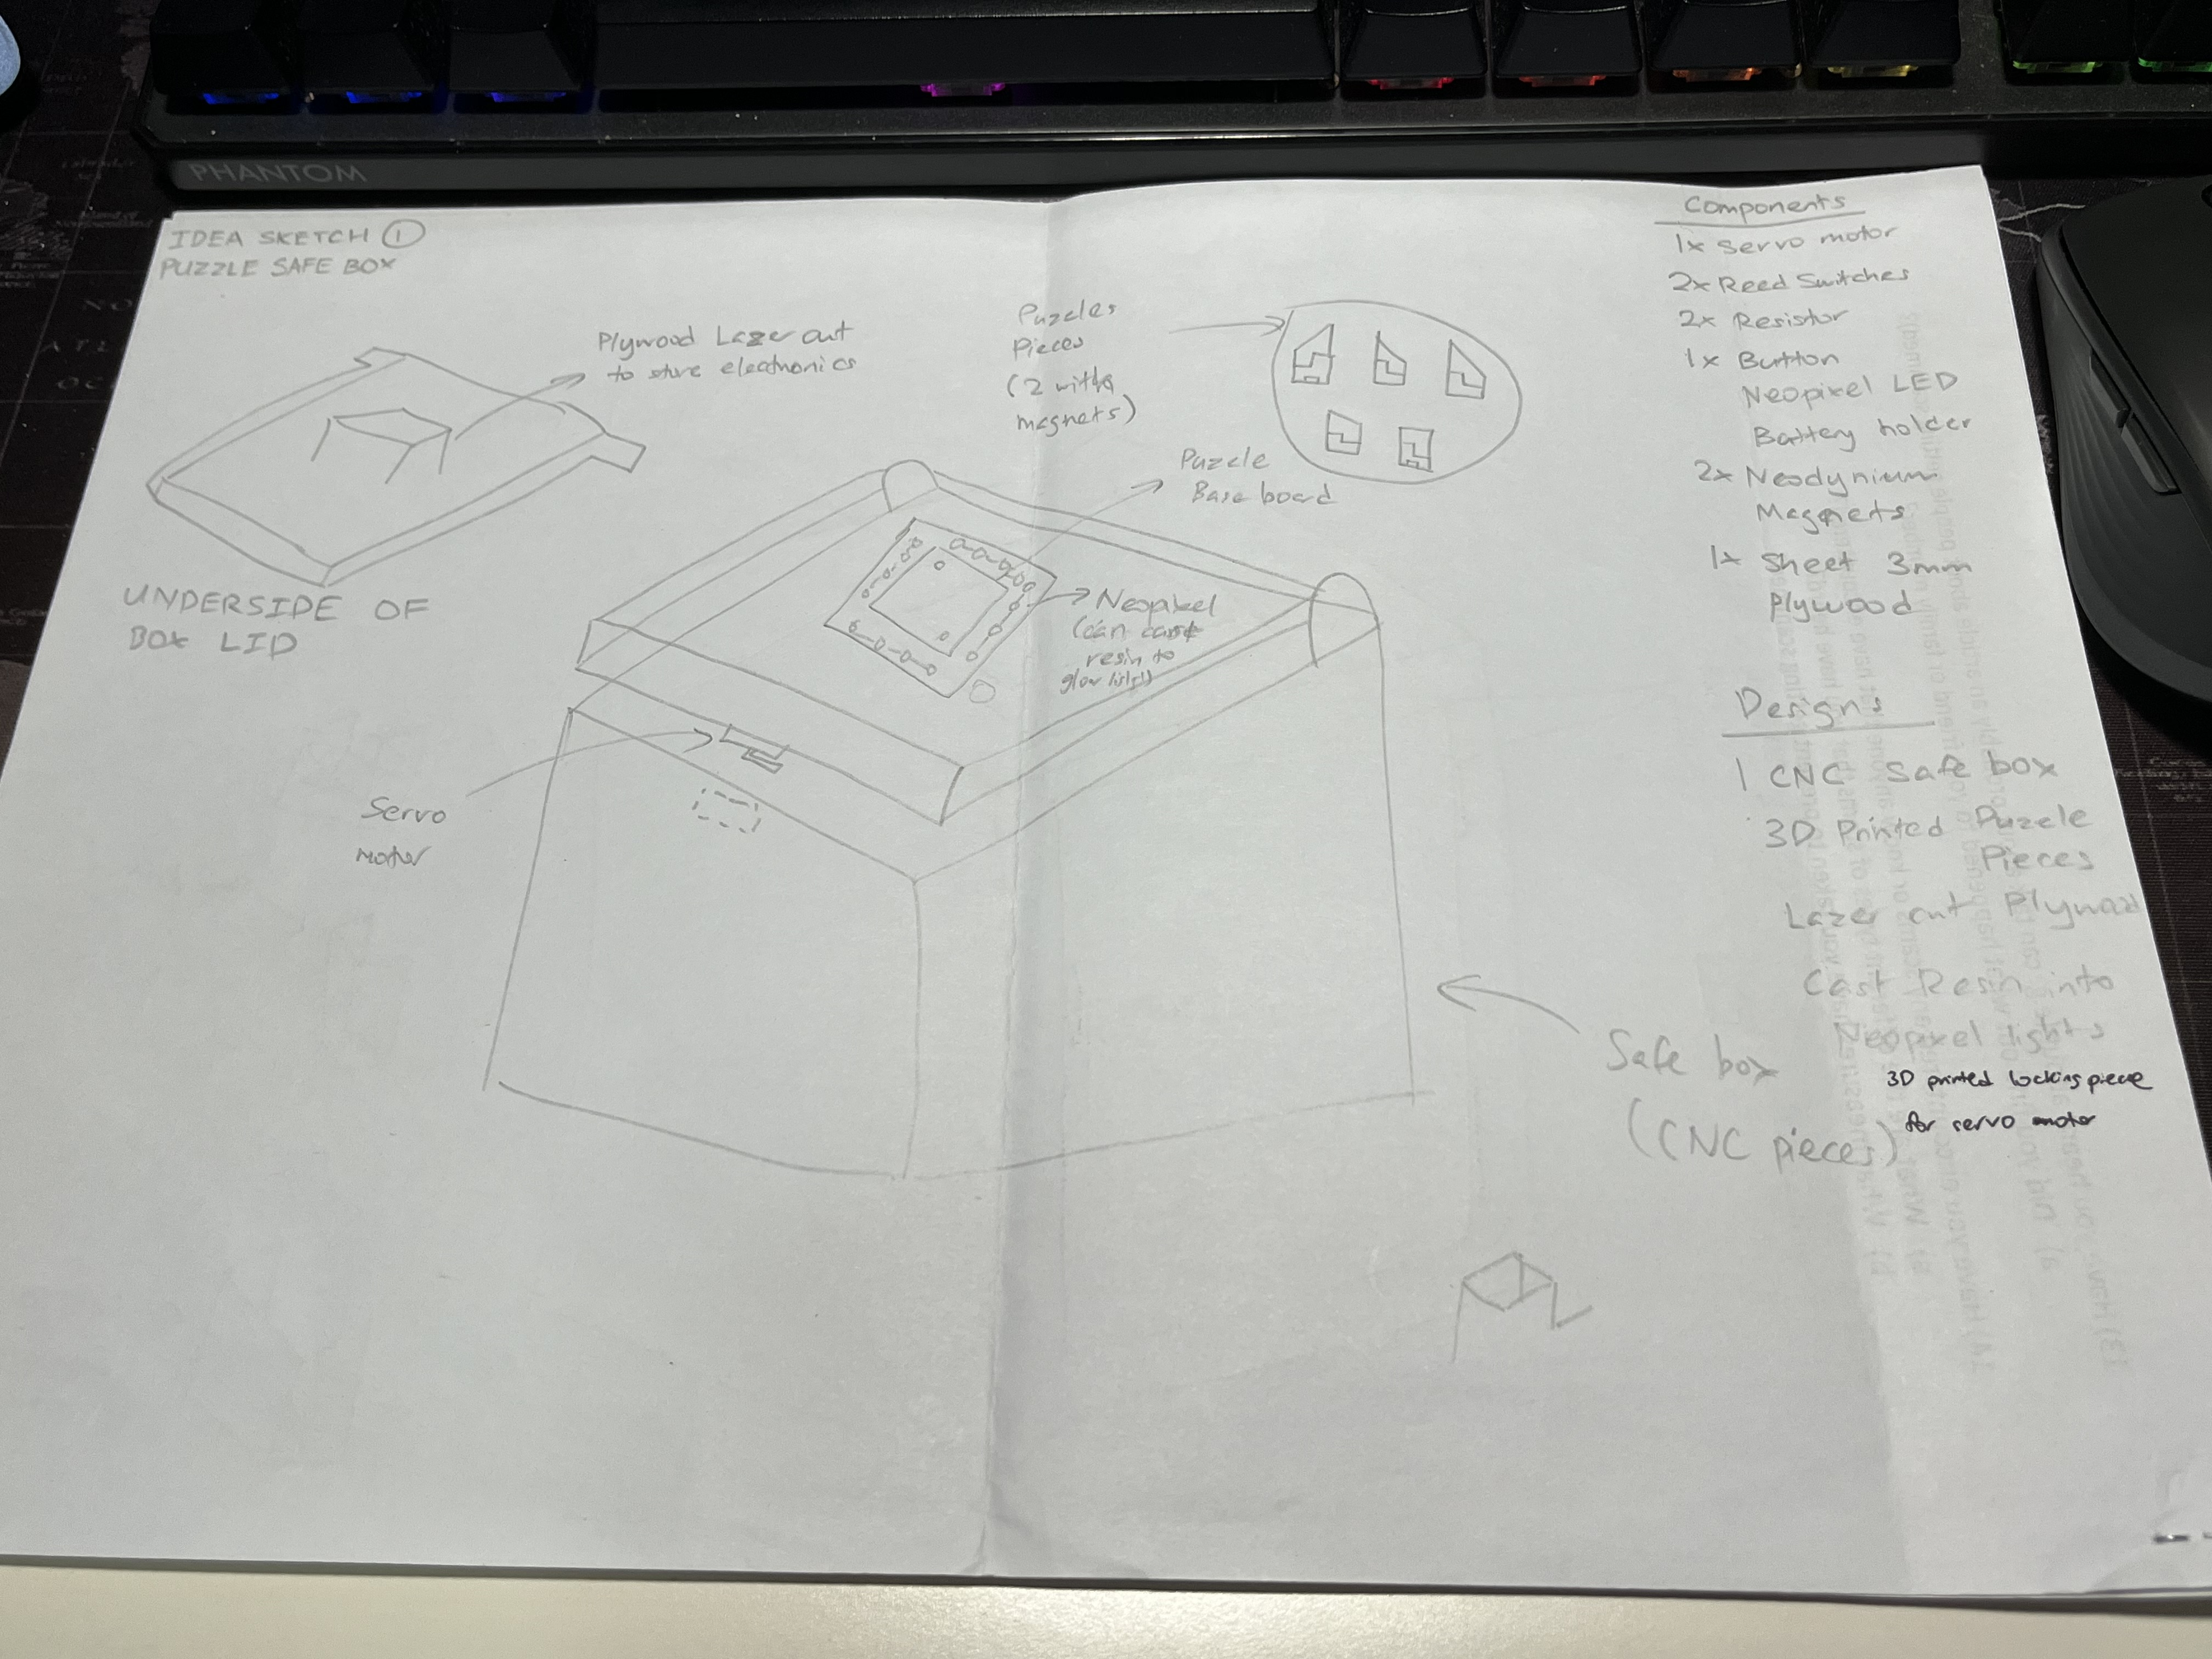 PHANTOM
IDEA SKETCH 1
PUZZLE SAFE BOX
Plywood Lazer cut
to store electronics
UNDERSIDE OF
BOX LID
Puzzles
Pieces
(2 with
magnets)
Puzzle
Base board
Neopixel
(can cast
resin to
glow light)
Servo
motor
Safe box
(CNC pieces)
Components
1x Servo motor
2x Reed Switches
2x Resistor
1x Button
Neopixel LED
Battery holder
2x Neodynium
Magnets
1x Sheet 3mm
Plywood
Designs
1 CNC Safe box
3D Printed Puzzle
Pieces
Lazer cut Plywood
Cast Resin into
Neopixel lights
3D printed locking piece
for servo motor